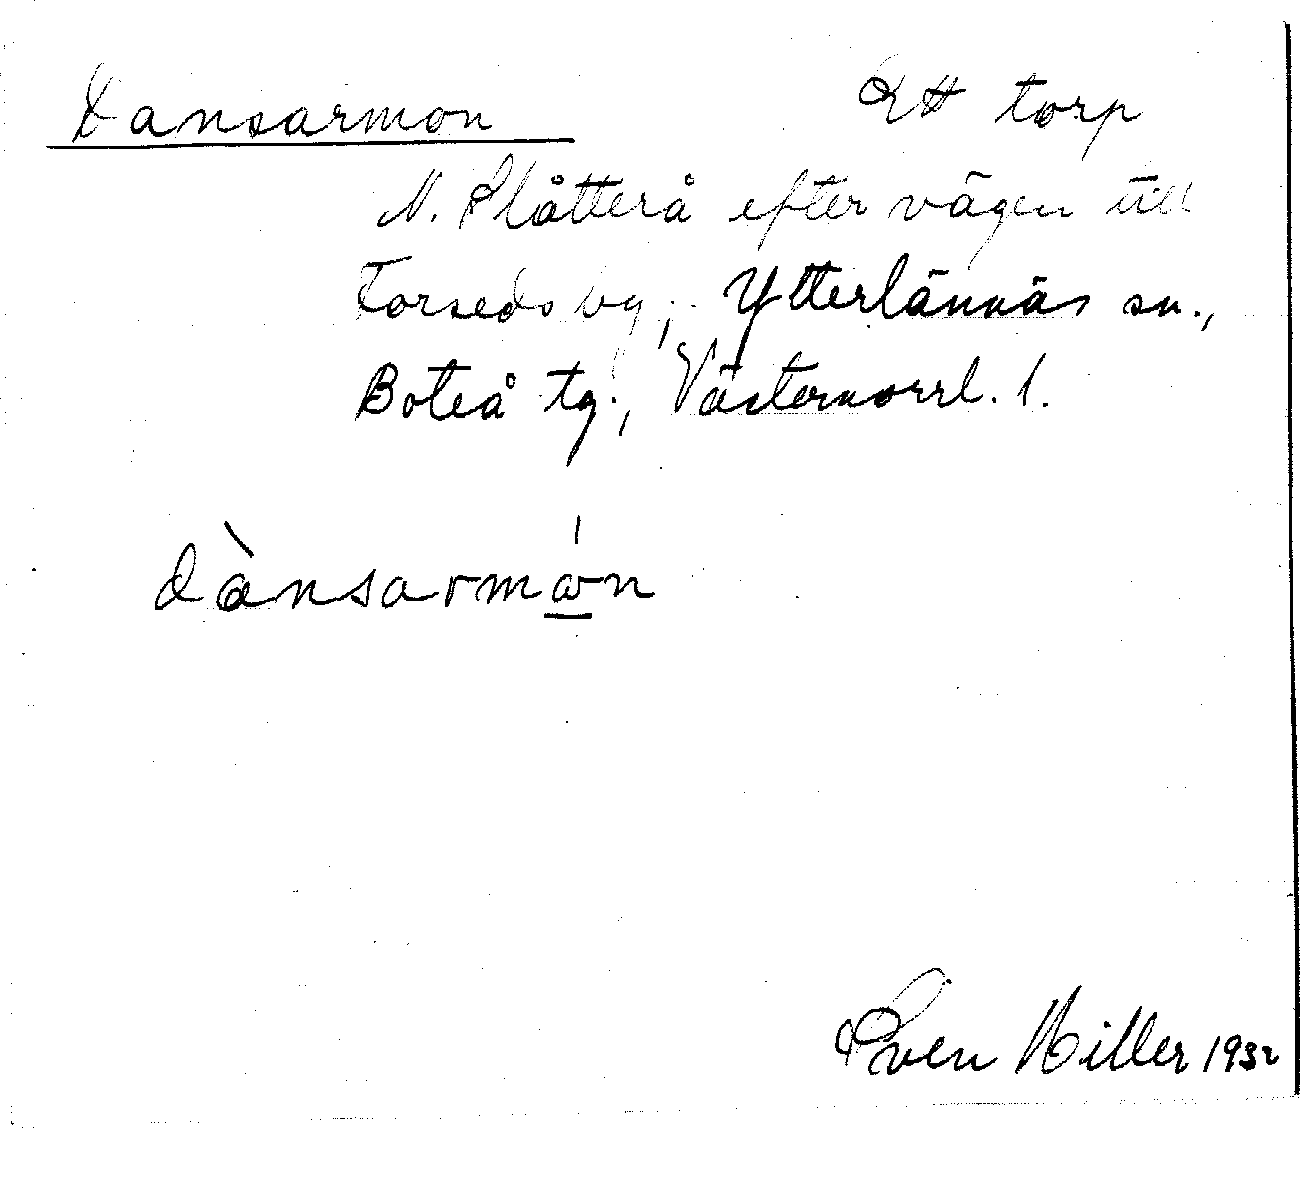 Dansarmon Ett torp
N. Slåtterå efter vägen till
Torseds by, Ytterlännäs sn.,
Boteå tg., Västernorrl. l.
dànsarmón
Sven Hiller 1932